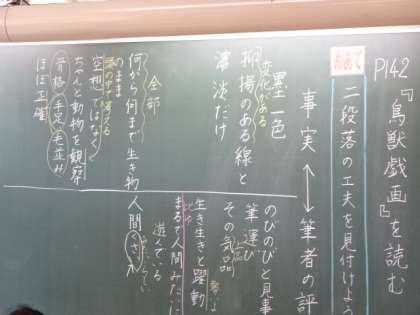 P142
『鳥獣戯画』を読む
めあて
二段落の工夫を見付けよう
事実 ⟷ 筆者の評
墨一色
変化がある
抑揚のある線と
濃淡だけ
全部
何から何まで生き物
のまま
空想ではなく
ちゃんと動物を観察
骨格 手足 毛並み
ほぼ正確
のびのびと見事
筆運び
上品
その気品
生き生きと躍動
比ゆ
まるで人間みたいに
遊んでいる
人間くさい